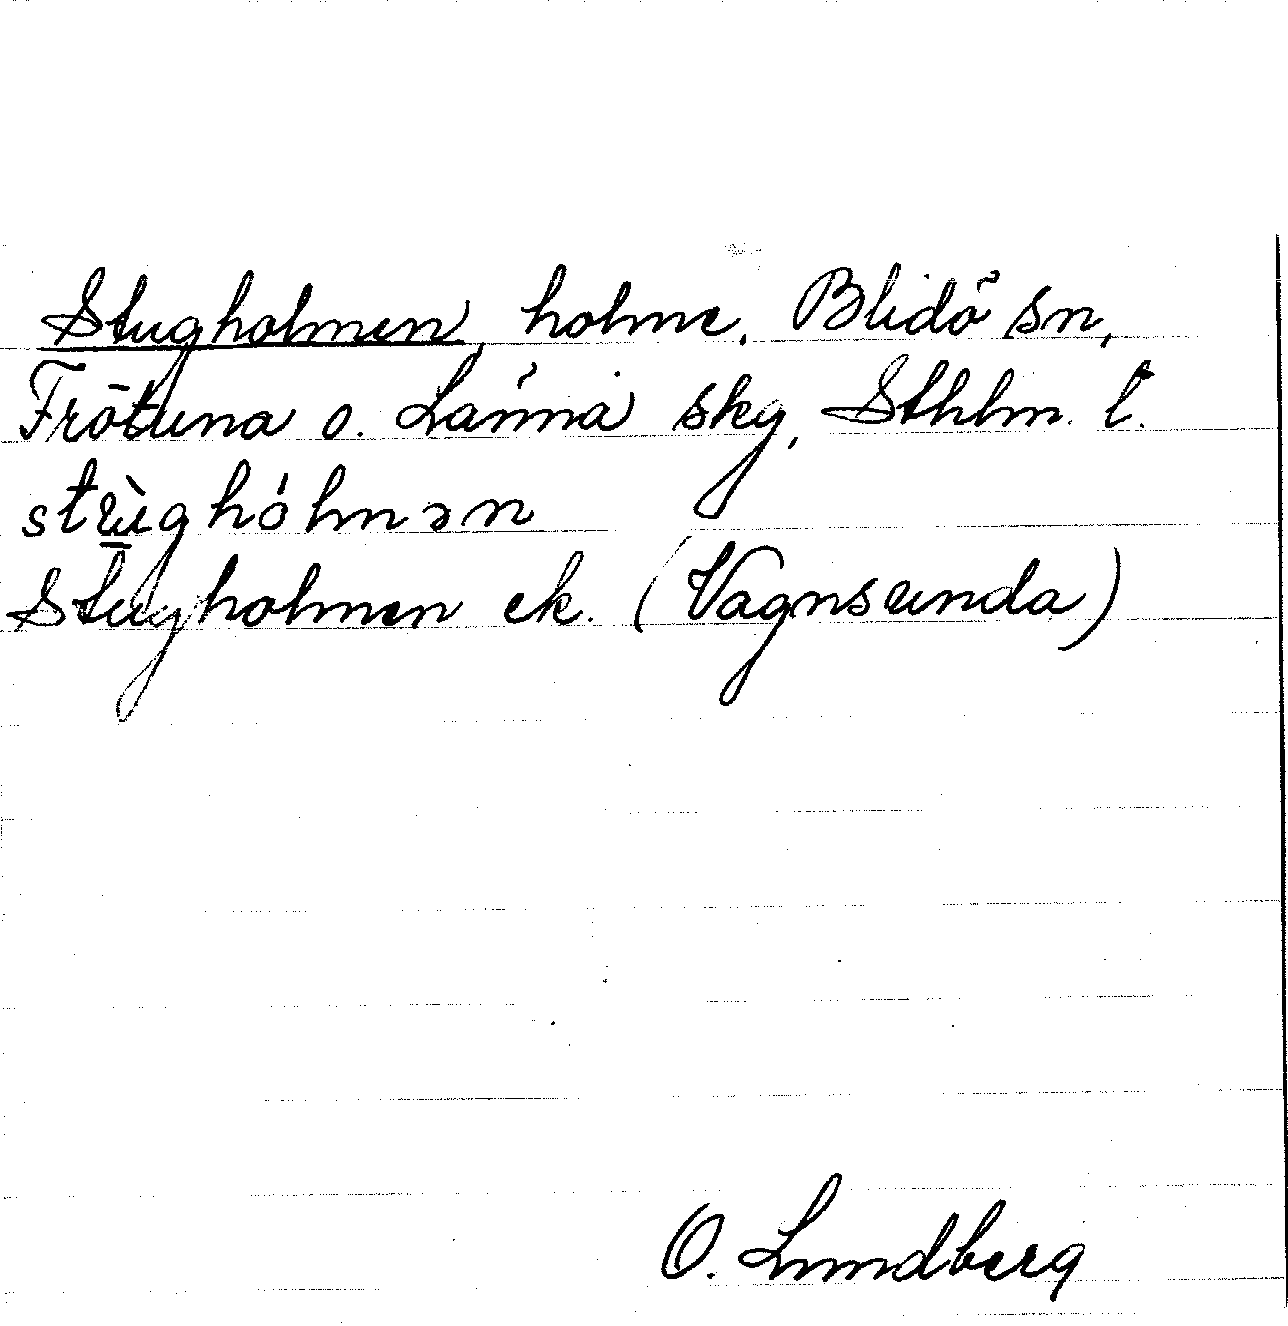 Stugholmen, holme, Blidö sn,
Frötuna o. Länna skg, Sthlm. l.
stùg̲hólmən
Stugholmen ek. (Vagnsunda)
O. Lundberg